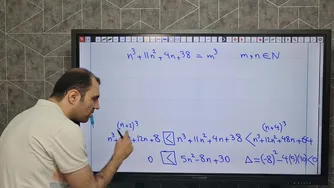 n³+11n²+4n+38 = m³    m,n∈N
(n+2)³    (n+4)³
n³ 12n+8 < n³+11n²+4n+38 < n³+12n²+48n+64
0 < 5n²-8n+30    Δ=(-8)²-4(5)(30)<0